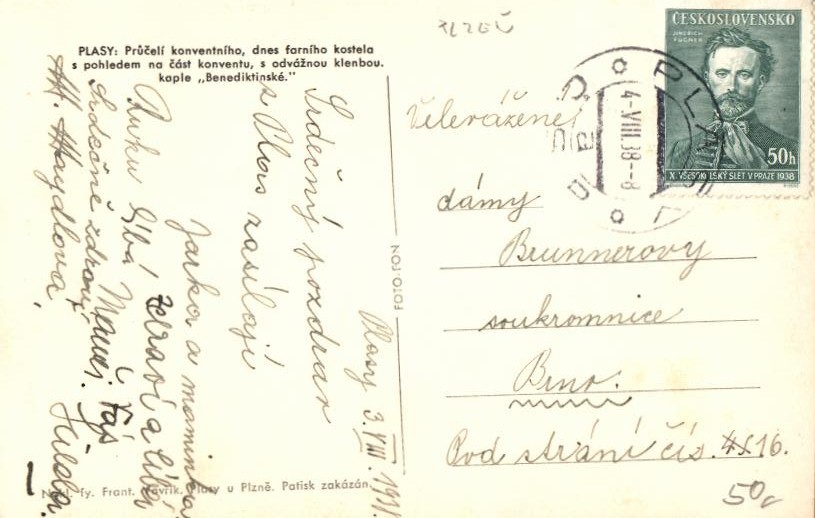 PLZEŇ
PLASY: Průčelí konventního, dnes farního kostela
s pohledem na část konventu, s odvážnou klenbou.
kaple „Benediktinské."
Plasy 3.VIII.
Srdečný pozdrav
z Plas zasílají
Jarka a maminka
Ruku líbá
Zdraví a líbá
Srdečně zdraví
M. Haydlova
FOTO-FON
Nakl. fy. Frant. Plasy u Plzně. Patisk zakázán.
ČESKOSLOVENSKO
JINDŘICH
FÜGNER
50h
X. VŠESOKOLSKÝ SLET V PRAZE 1938
PLASY
4-VIII.38-8
Velevážené
dámy
Brunnerovy
soukromnice
Brno.
Pod strání čís. 16.
50